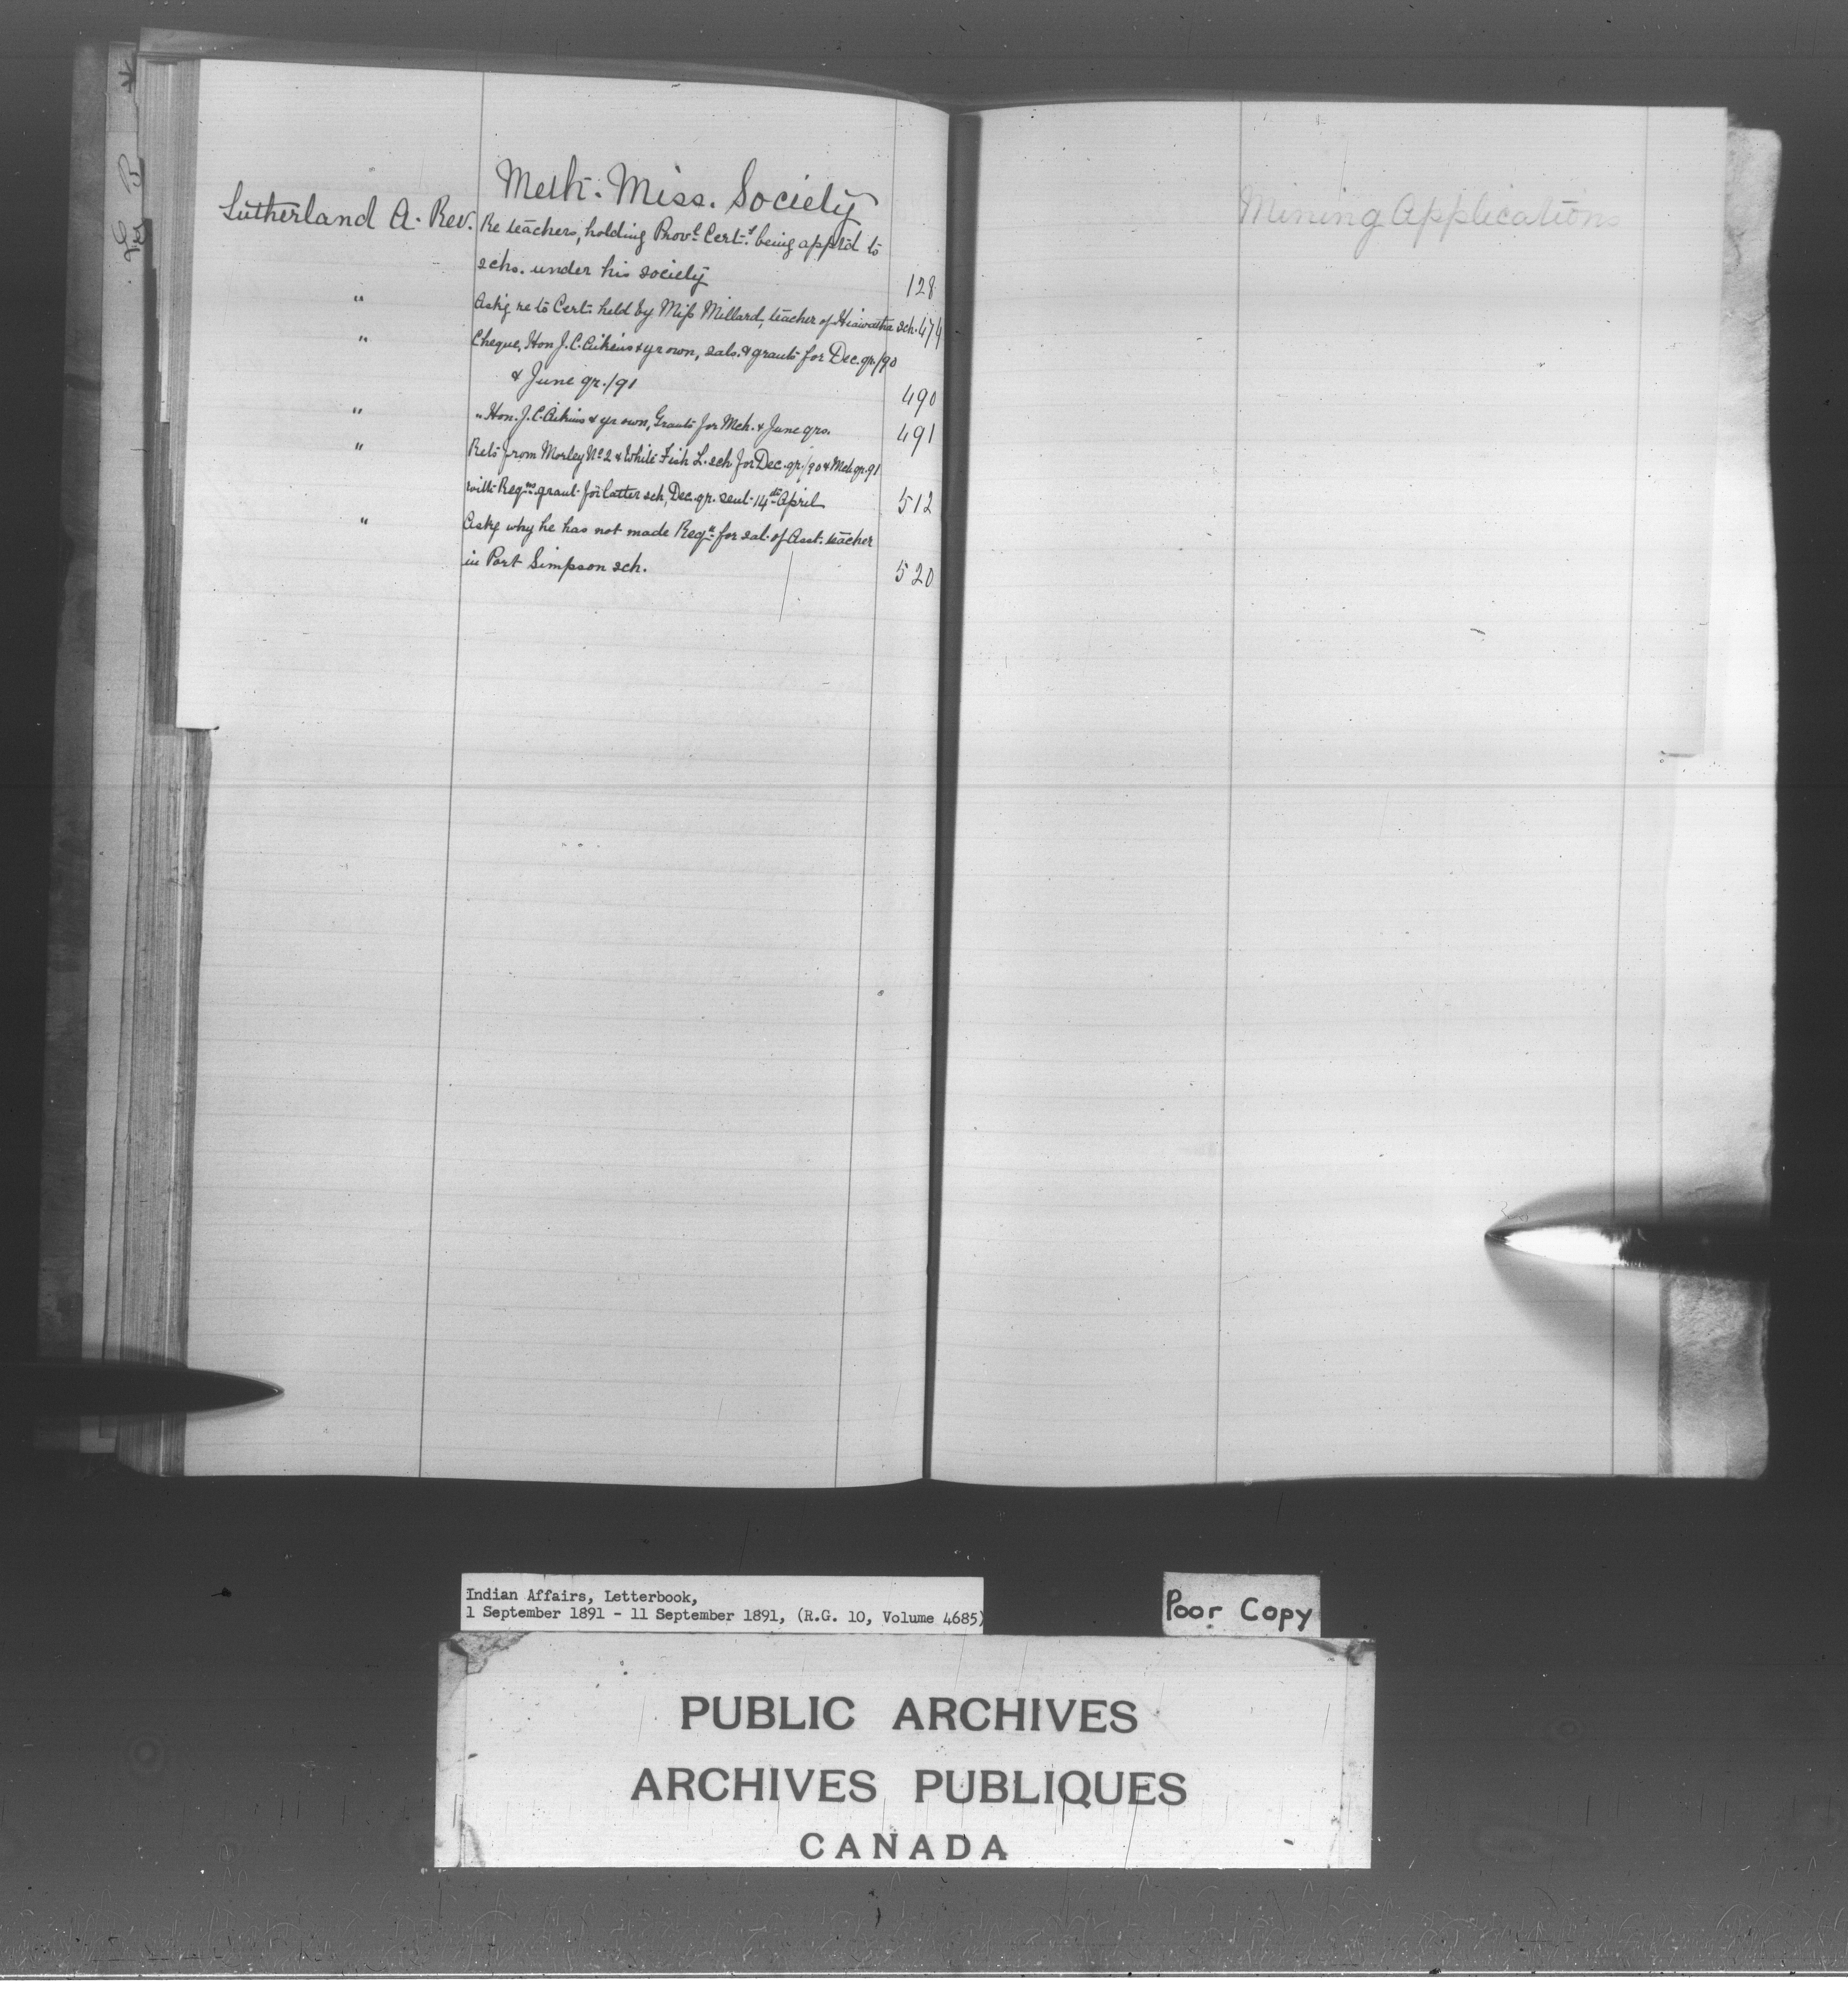 Meth. Miss. Society
Sutherland A. Rev. Re teachers, holding Provl. Certs. being app'td to
schs. under his society 128
" Ask'g re to Cert. held by Miss Millard, teacher of Hiawatha sch. 474
" Cheque, Hon J. C. Aikins & yr own, sals. & grants for Dec. qr./90
& June qr./91 490
" " Hon. J. C. Aikins & yr own, Grants for Mch. & June qrs. 491
" Rets from Morley No 2 & White Fish L. sch for Dec. qr./90 & Mch qr. 91
with Reqns. grant for latter sch, Dec. qr. sent 14th April 512
" Ask'g why he has not made Reqn. for sal. of Asst. teacher
in Port Simpson sch. 520
Mining Applications
Indian Affairs, Letterbook,
1 September 1891 - 11 September 1891, (R.G. 10, Volume 4685)
Poor Copy
PUBLIC ARCHIVES
ARCHIVES PUBLIQUES
CANADA